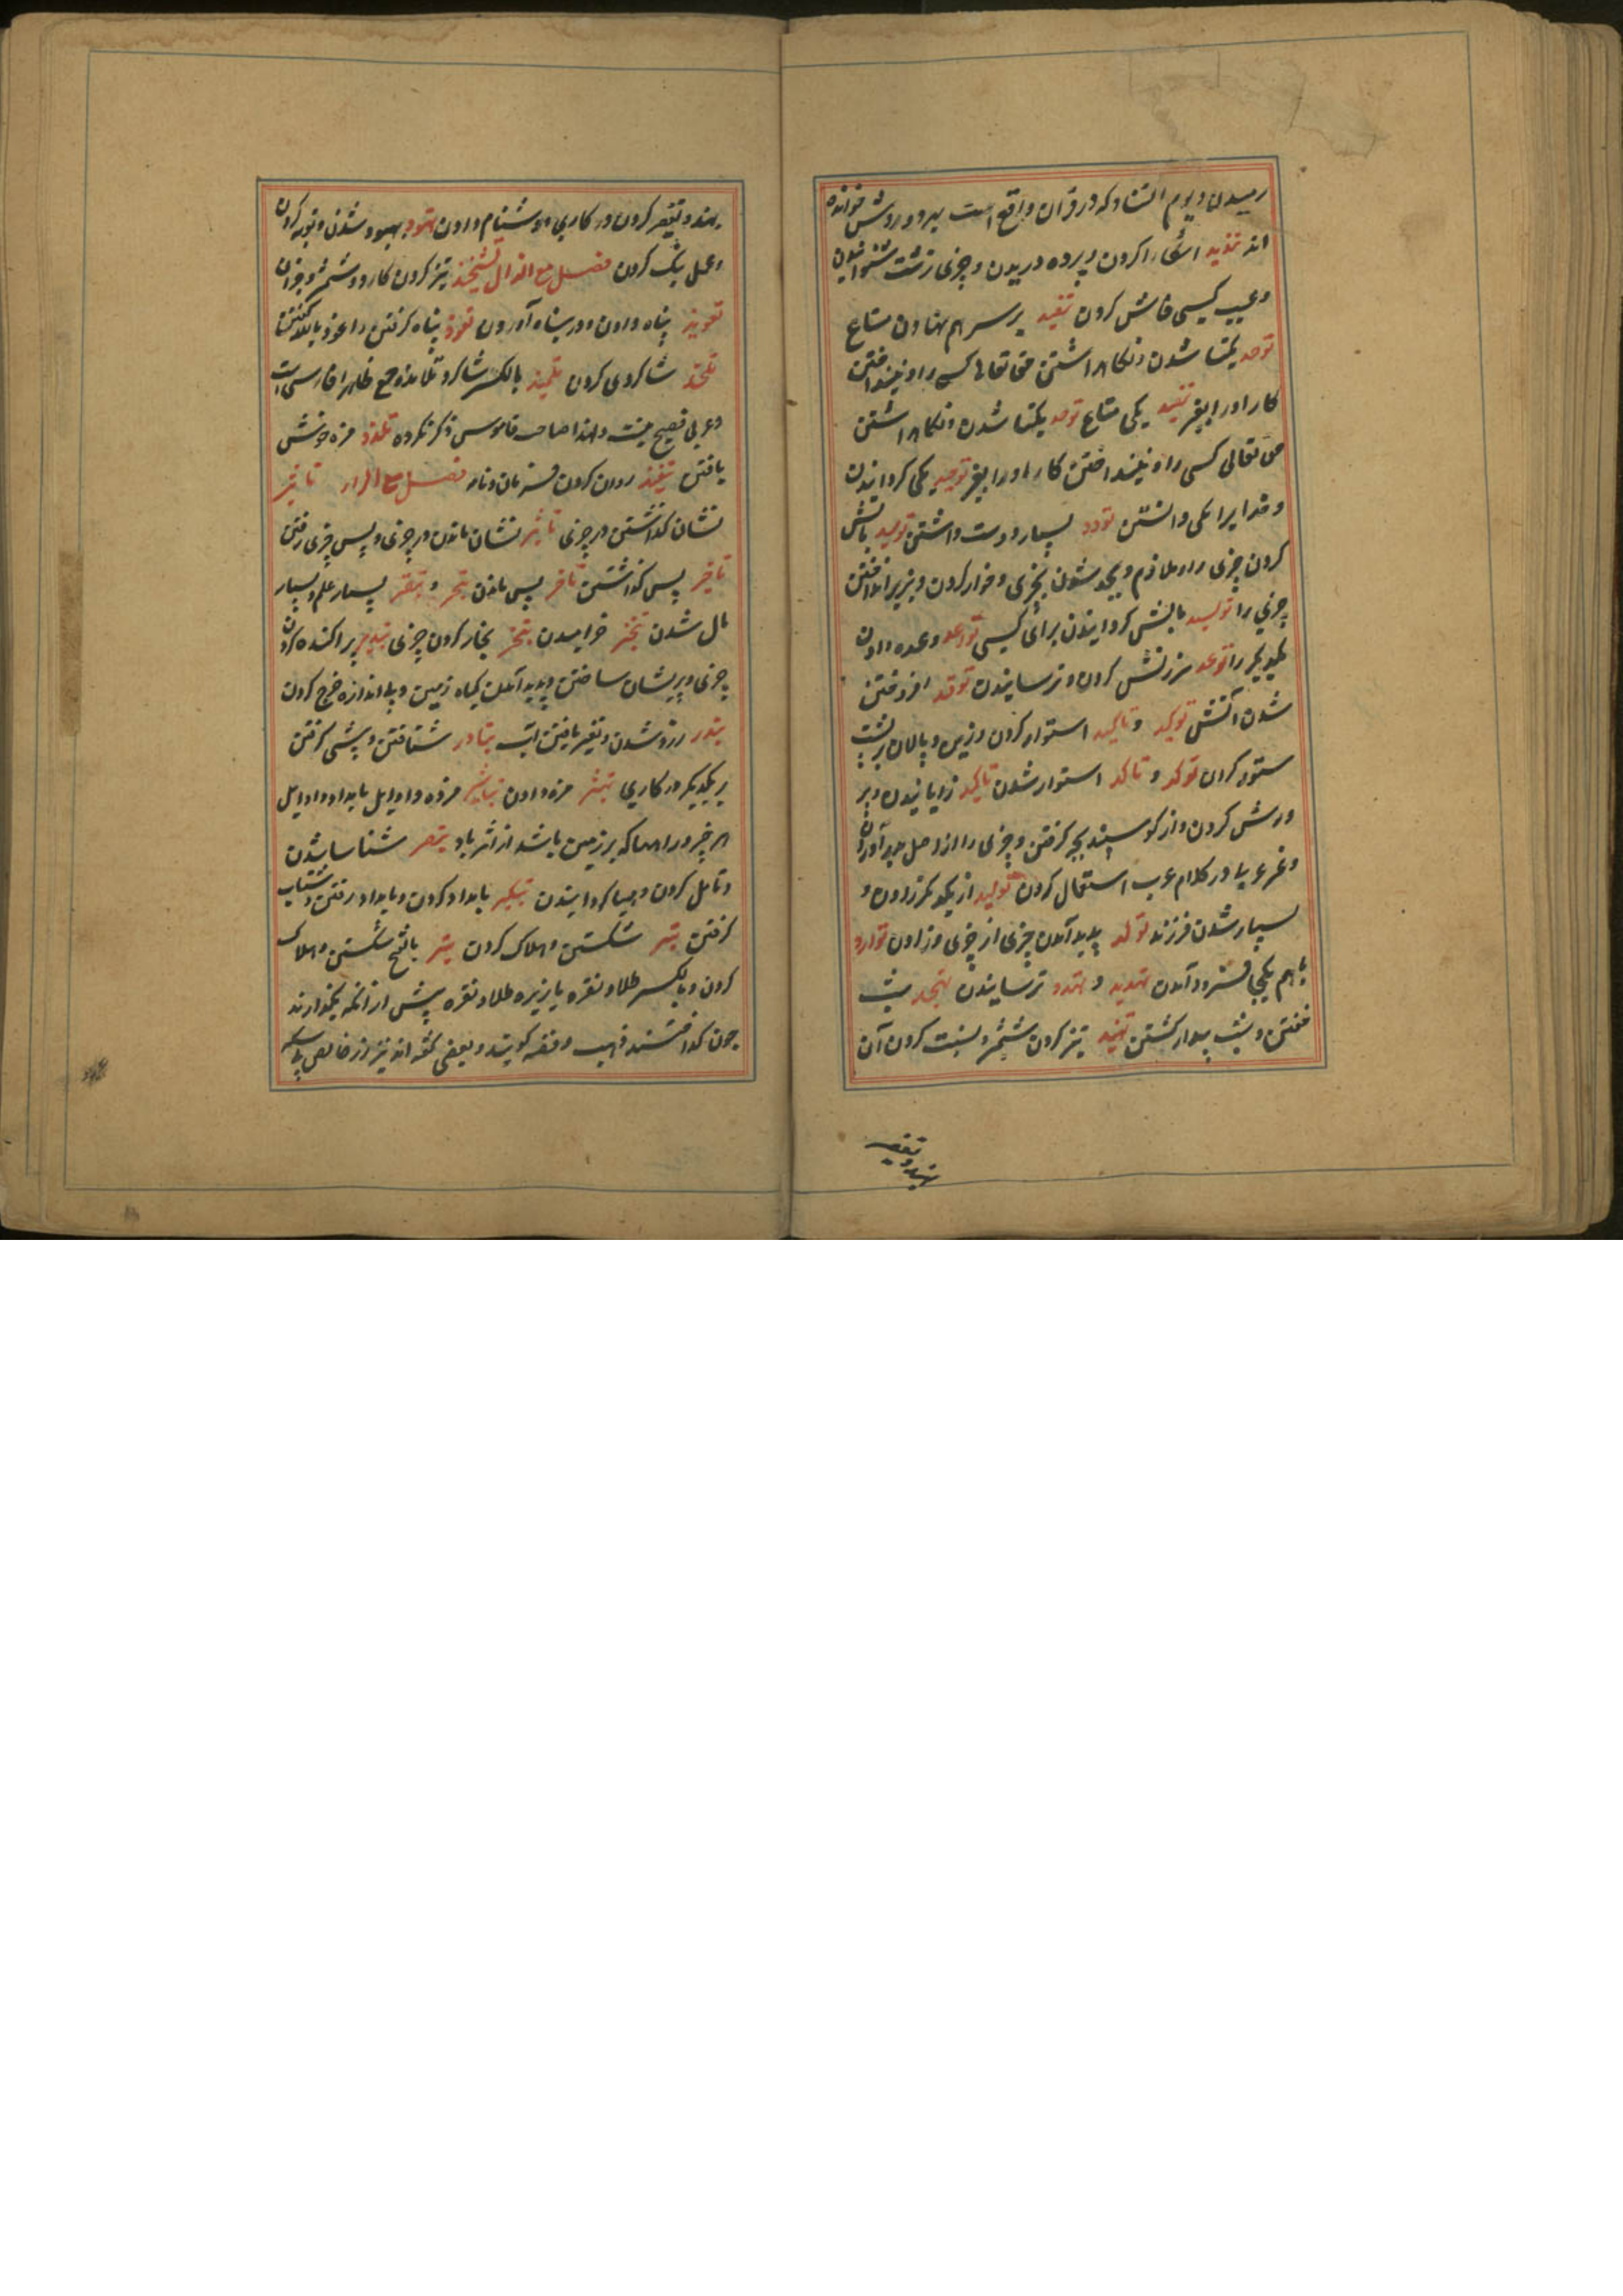 رمیدن و یوم التناد که در قران واقع است بهر دو روش خوانده
اند تندید اشکارا کردن و پرده دریدن و چیزی زشت شنوانیدن
و عیب کسی فاش کردن تنضید بر سر هم نهادن متاع
توحد یکتا شدن و نگاهداشتن حق تعالی کسی را و نینداختن
کار او را بغیر تنضید یکی متاع توحد یکتا شدن و نگاهداشتن
حق تعالی کسی را و نینداختن کار او را بغیر توحید یکی گردانیدن
و خدایرا یکی دانستن تودد بسیار دوست داشتن توسید بالش
کردن چیزی را و ملازم و بجد شدن بچیزی و خوار کردن و بزیر انداختن
چیزی را توسید بالش گردانیدن برای کسی تواعد وعده دادن
یکدیگر را توعد سرزنش کردن و ترسانیدن توقد افروختن
شدن آتش توکید و تاکید استوار کردن و زین و پالان بر پشت
ستور کردن توکد و تاکد استوار شدن تولید زایانیدن و پر
ورش کردن و از گوسپند بچه گرفتن و چیزی را از اصل پدید آوردن
و غیر عربیا در کلام عرب استعمال کردن توالید از یکدیگر زادن و
بسیار شدن فرزند تولد پدید آمدن چیزی از چیزی و زادن توارد
با هم یکجا فرود آمدن تهدید و تهدد ترسانیدن تهجد بشب
خفتن و بشب بیدار گشتن تهنید تیز کردن شمشیر و نسبت کردن آن
بهند و تقصیر
بهند و تقصیر کردن در کاری و دشنام دادن تهود یهود شدن و توبه کردن
و عمل نیک کردن فصل مع الذال تشحیذ تیز کردن کارد و شمشیر و جز آن
تعویذ پناه دادن و در پناه آوردن تعوذ پناه گرفتن و اعوذ بالله گفتن
تلمذ شاگردی کردن تلمیذ بالکسر شاگرد تلامذه جمع ظاهرا فارسی است
و عربی فصیح نیست و لهذا صاحب قاموس ذکر نکرده تلذذ مزه خوش
یافتن تنفیذ روان کردن فرمان و نامه فصل مع الراء تاثیر
نشان گذاشتن در چیزی تاثر نشان ماندن در چیزی و پس چیزی رفتن
تاخیر پس گذاشتن تاخر پس ماندن تبحر و تبقر بسیار علم و بسیار
مال شدن تبختر خرامیدن تبخیر بخار کردن چیزی تبذیر پراکنده کردن
چیزی و پریشان ساختن و پدید آمدن گیاه زمین و بی اندازه خرج کردن
تبذر زرد شدن و تغیر یافتن آب تبادر شتافتن و پیشی گرفتن
بر یکدیگر در کاری تبشیر مژده دادن تباشیر مژده و اوایل بامداد و اوایل
هر چیز و راهها که بر زمین باشد از اثر باد تبصر شناسا شدن
و تامل کردن و بینا گردانیدن تبکیر بامداد کردن و بامداد رفتن و شتاب
گرفتن تتبیر شکستن و هلاک کردن تبر بالفتح شکستن و هلاک
کردن و بالکسر طلا و نقره یا ریزه طلا و نقره پیش از آنکه بگدازند
چون گداختند ذهب و فضه گویند و بعضی گفته اند نیز زر خالص یا